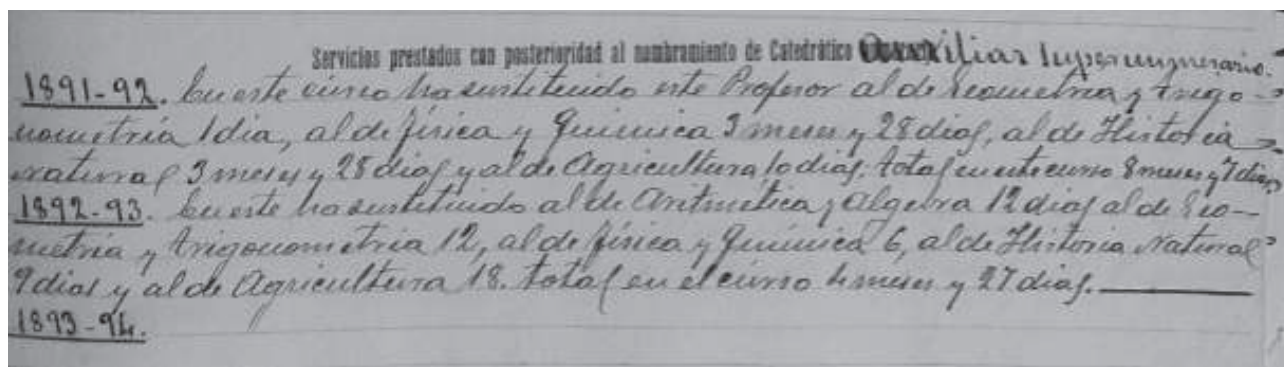 Servicios prestados con posterioridad al nombramiento de Catedrático Auxiliar Supernumerario.
1891-92. En este curso ha sustituido este Profesor al de Geometria y trigo-
nometría 1 dia, al de física y Química 3 meses y 28 dias, al de Historia
natural 3 meses y 28 dias y al de Agricultura 10 dias. total en este curso 8 meses y 7 dias,
1892-93. En este ha sustituido al de Aritmética y Algebra 12 dias al de Geo-
metria y trigonometria 12, al de física y Química 6, al de Historia Natural
9 dias y al de Agricultura 18. total en el curso 4 meses y 27 dias.
1893-94.